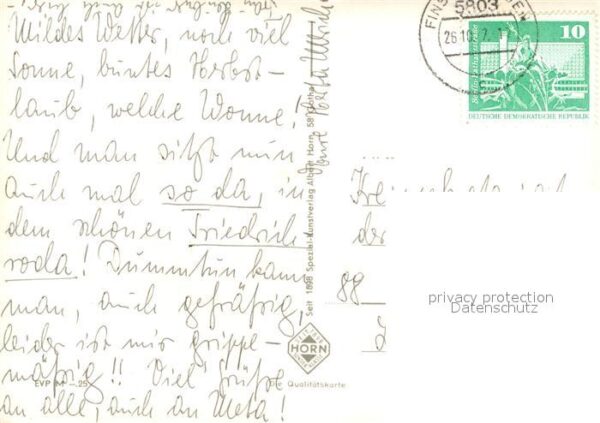 Mildes Wetter, noch viel
Sonne, buntes Herbst-
laub, welche Wonne!
Und man sitzt nun
auch mal so da, in
dem schönen Friedrich
roda! Dummtun kann
man, auch gefräßig,
leider ist mir grippe-
mäßig!! Viel' Grüße
an alle, auch an Meta!
Eure
EVP M -.25
Seit 1898 Spezial-Kunstverlag Albert Horn, 58 Gotha
HORN
Die Qualitätskarte
5803
FINS
EN
26.10.
10
DEUTSCHE DEMOKRATISCHE REPUBLIK
der
88
privacy protection
Datenschutz